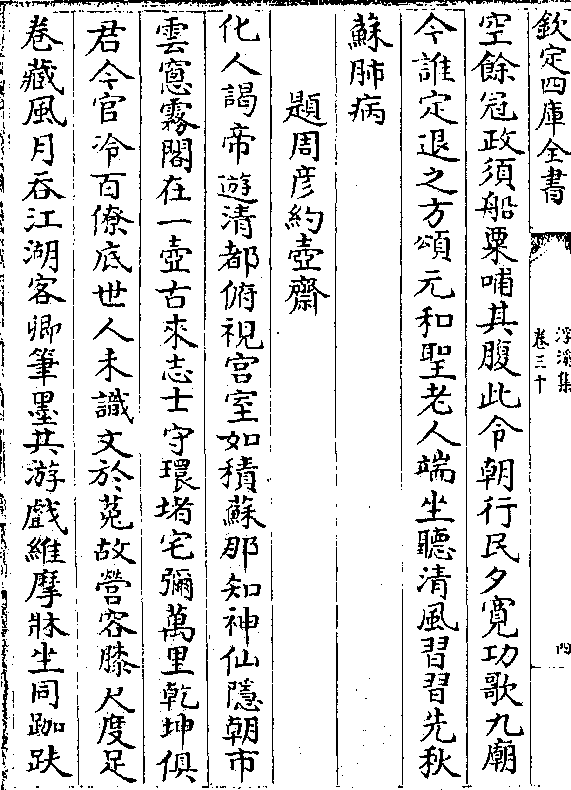 欽定四庫全書
浮溪集
卷三十
四
空餘冠政須船粟哺其腹此令朝行民夕寛功歌九廟
今誰定退之方頌元和聖老人端坐聽清風習習先秋
蘇肺病
題周彦約壺齋
化人謁帝遊清都俯視宫室如積蘇那知神仙隱朝市
雲窻霧閣在一壺古來志士守環堵宅彌萬里乾坤俱
君今官冷百僚底世人未識文於菟故營容膝尺度足
卷藏風月吞江湖客卿筆墨共游戲維摩牀坐同跏趺